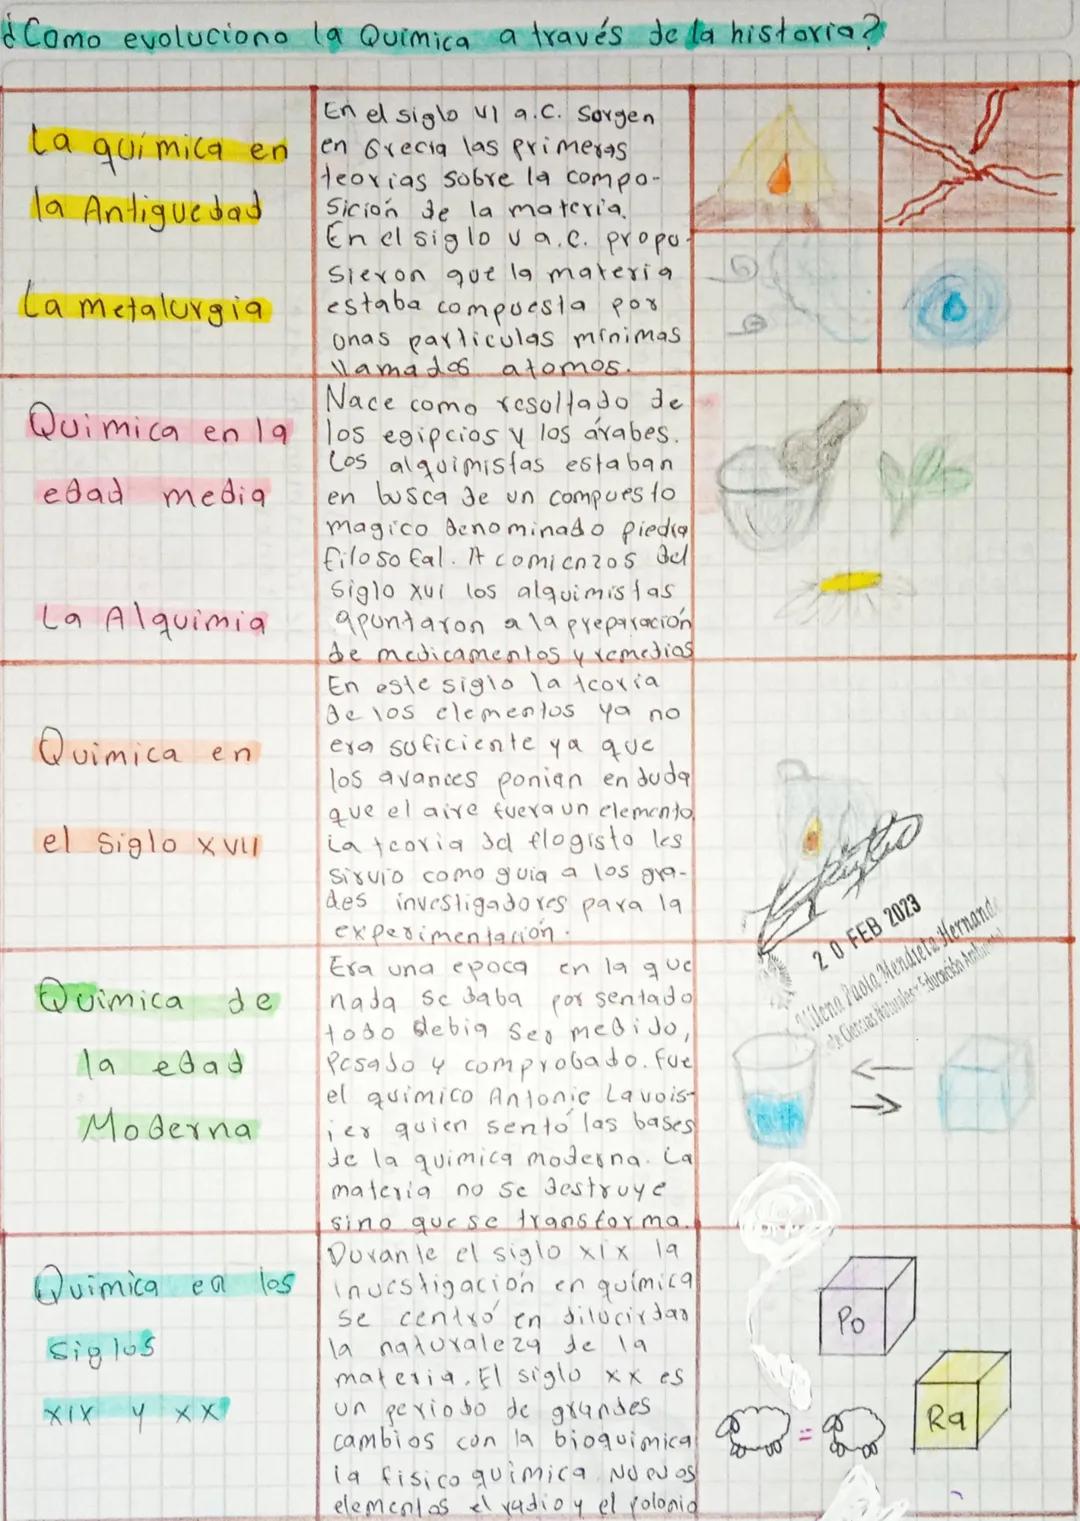 ¿Como evoluciono la Química a través de la historia?
La química en
la Antiguedad
La metalurgia
En el siglo VI a.C. Surgen
en Grecia las primeras
teorias sobre la compo-
sición de la materia.
En el siglo V a.C. propu-
sieron que la materia
estaba compuesta por
unas particulas mínimas
llamados atomos.
Quimica en la
edad media
La Alquimia
Nace como resultado de
los egipcios y los árabes.
Los alquimistas estaban
en busca de un compuesto
magico denominado piedra
filosofal. A comienzos del
siglo XVI los alquimistas
apuntaron a la preparación
de medicamentos y remedios
Quimica en
el Siglo XVII
En este siglo la teoria
de los elementos ya no
era suficiente ya que
los avances ponian en duda
que el aire fuera un elemento
La teoria del flogisto les
sirvio como guia a los gra-
des investigadores para la
experimentación.
20 FEB 2023
Milena Paola Mendieta Hernand
de Ciencias Naturales y Educación Ambiental
Quimica de
la edad
Moderna
Era una epoca en la que
nada se daba por sentado
todo debia ser medido,
pesado y comprobado. Fue
el químico Antonie Lavois-
ier quien sentó las bases
de la quimica moderna. La
materia no se destruye
sino que se transforma.
Quimica en los
Siglos
XIX y XX
Durante el siglo XIX la
investigación en química
se centró en dilucirdar
la naturaleza de la
materia. El siglo XX es
un periodo de grandes
cambios con la bioquimica
la fisicoquimica. Nuevos
elementos el radio y el polonio
Po
Ra
=